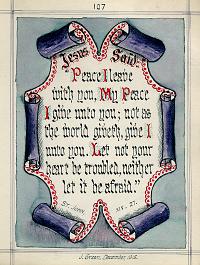 107
Jesus Said:
Peace I leave
with you, My Peace
I give unto you; not as
the world giveth, give I
unto you. Let not your
heart be troubled, neither
let it be afraid."
St. John, XIV. 27.
J. Green, December, 1916.